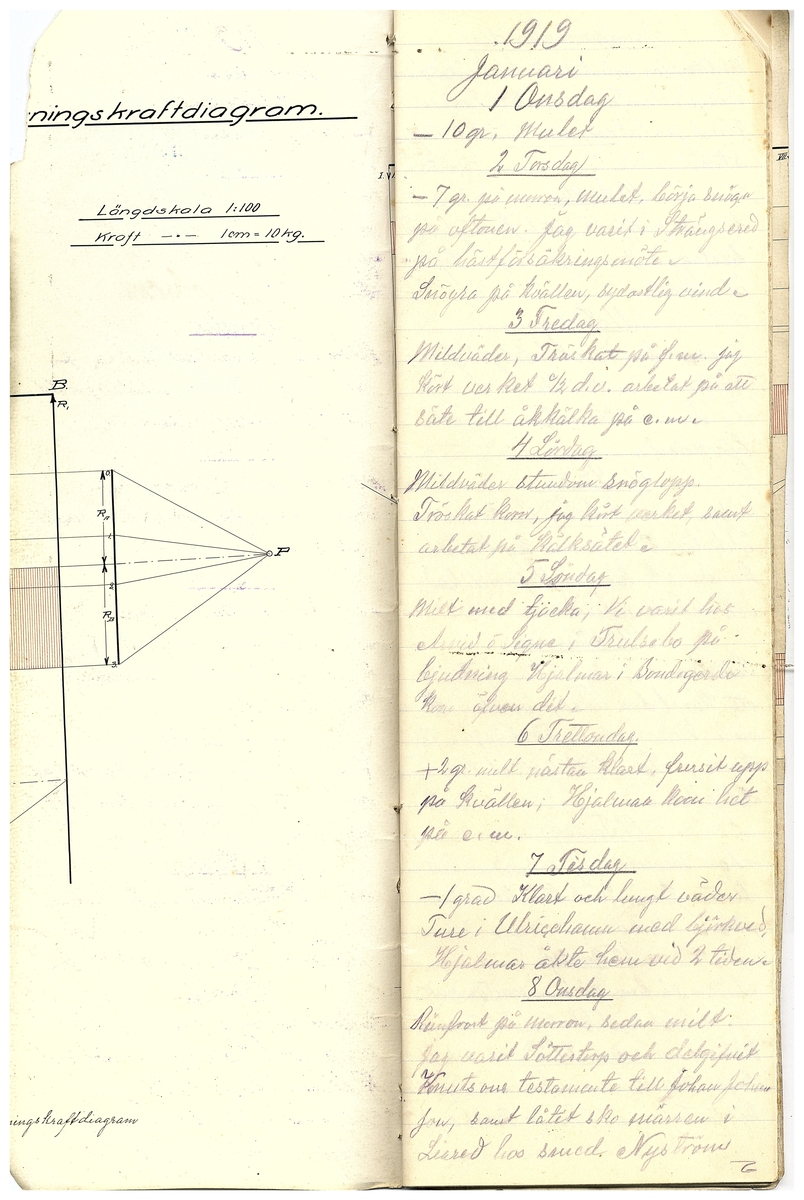 ningskraftdiagram.
Längdskala 1:100
Kraft —"— 1cm = 10 kg.
B.
R,
0
1
2
3
P
ningskraftdiagram
1919
Januari
1 Onsdag
— 10 gr. Mulet
2 Torsdag
— 7 gr. på morron, mulet, börja snöga
på aftonen. Jag varit i Strängsered
på hästförsäkringsmöte.
Snögra på kvällen, sydostlig vind.
3 Fredag
Mildväder, Tröskat på f.m. jag
kört verket arbetat på ett
säte till åkkälka på e.m.
4 Lördag
Mildväder stundom snöglopp.
Tröskat korn, jag kört verket, samt
arbetat på kälksätet.
5 Söndag
Milt med tjocka, Vi varit hos
Arvid o Signe i Trulsabo på
bjudning Hjalmar i Bondegärde
kom äfven dit.
6 Trettondag.
+2 gr. milt nästan klart, frusit upp
på kvällen, Hjalmar kom hit
på e.m.
7 Tisdag
—1 grad Klart och lungt väder
Ture i Ulricehamn med björkved,
Hjalmar åkte hem vid 2 tiden.
8 Onsdag
Rimfrost på morron, sedan milt.
Jag varit Sättestorp och delgifvit
Knutsons testamente till Johan Johan
son, samt låtet sko märren i
Liared hos smed. Nyström